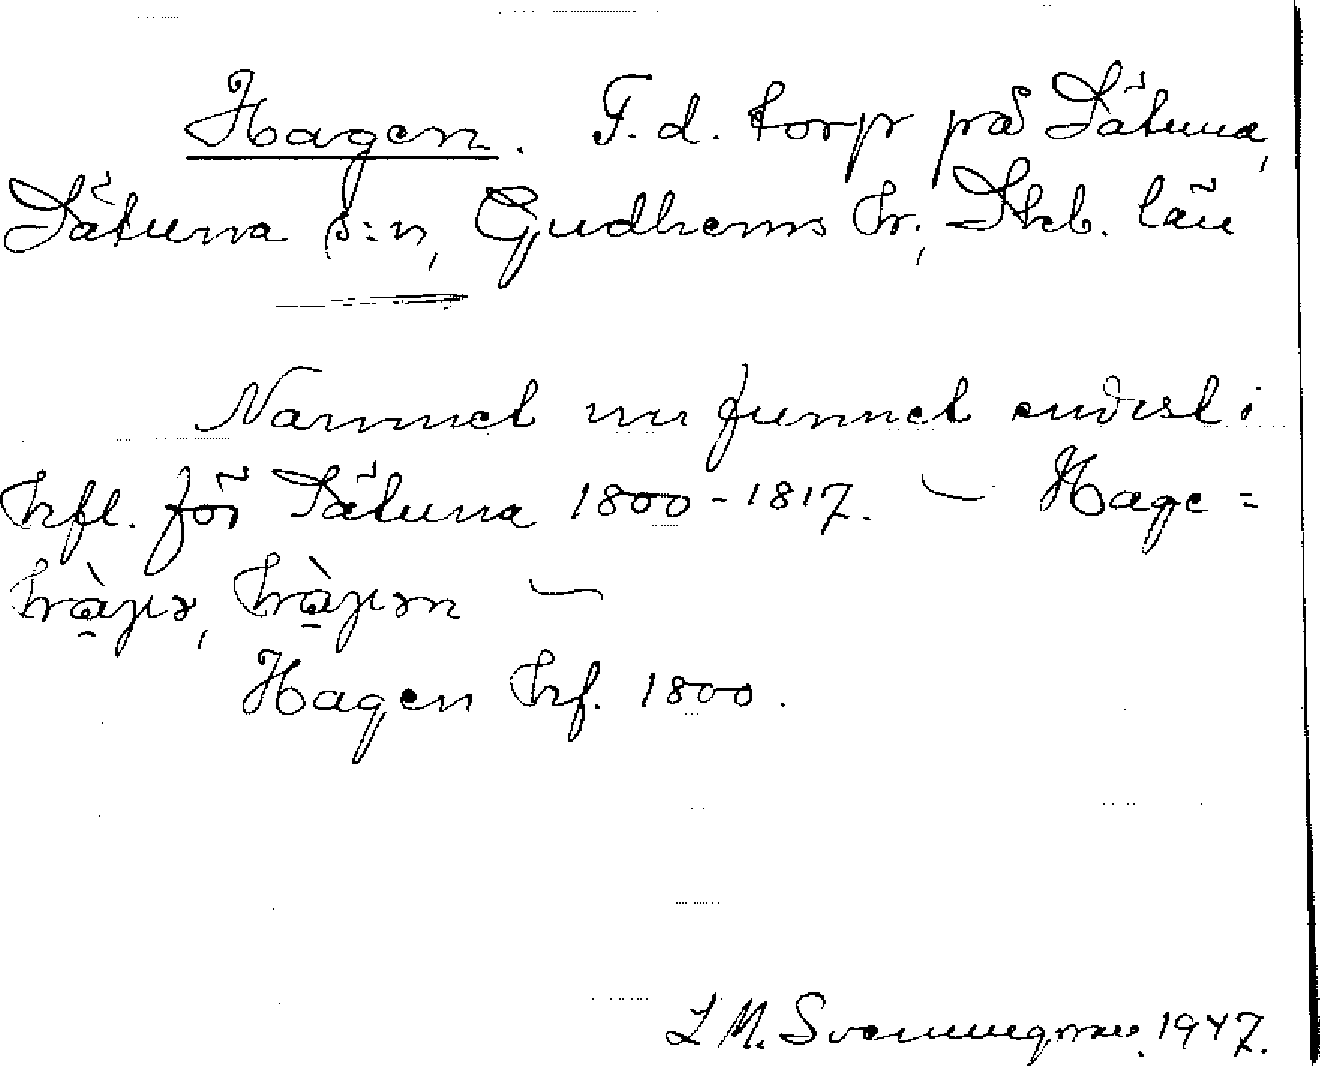 Hagen. F. d. torp på Sätuna,
Sätuna s:n, Gudhems hr, Skb. län
Namnet nu funnet endast i
hfl. för Sätuna 1800-1817. — Hage=
Hagen hf. 1800.
L M. Svenungsson. 1947.